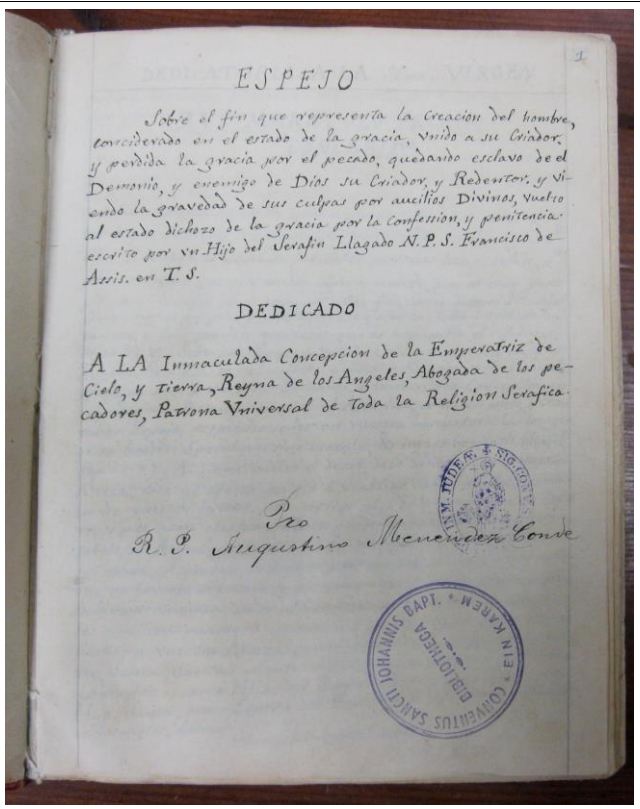 1
ESPEJO
Sobre el fin que representa la Creacion del hombre,
conciderado en el estado de la gracia, vnido a su Criador.
y perdida la gracia por el pecado, quedando esclavo de el
Demonio, y enemigo de Dios su Criador, y Redentor. y vi-
endo la gravedad de sus culpas por aucilios Divinos, vuelto
al estado dichozo de la gracia por la Confession, y penitencia.
escrito por vn Hijo del Serafin Llagado N. P. S. Francisco de
Assis. en T. S.
DEDICADO
A LA Inmaculada Concepcion de la Emperatriz de
Cielo, y tierra, Reyna de los Angeles, Abogada de los pe-
cadores, Patrona Vniversal de toda la Religion Serafica.
Pro
R. P. Augustino Menendez Conde
IN M. JUDEÆ. SIG. CONVS
CONVENTUS SANCTI JOHANNIS BAPT. * EIN KAREM *
BIBLIOTHECA